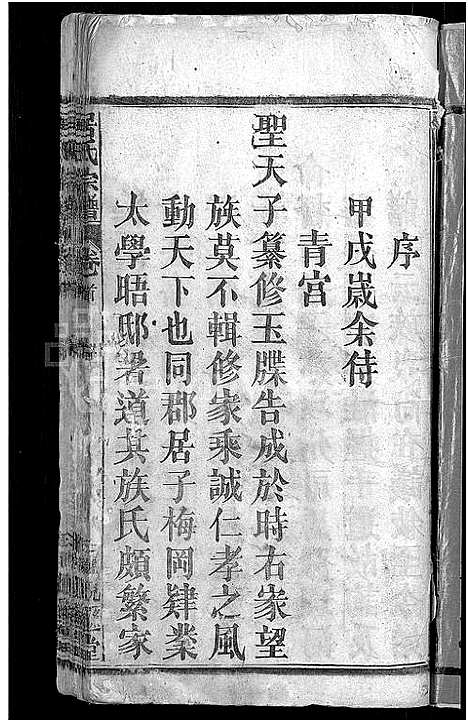 序
甲戌嵗余侍
青宫
聖天子纂修玉牒告成於時右家望
族莫不輯修家乘誠仁孝之風
動天下也同郡居子梅岡肄業
太學晤邸署道其族氏頗繁家
居氏宗譜 卷首